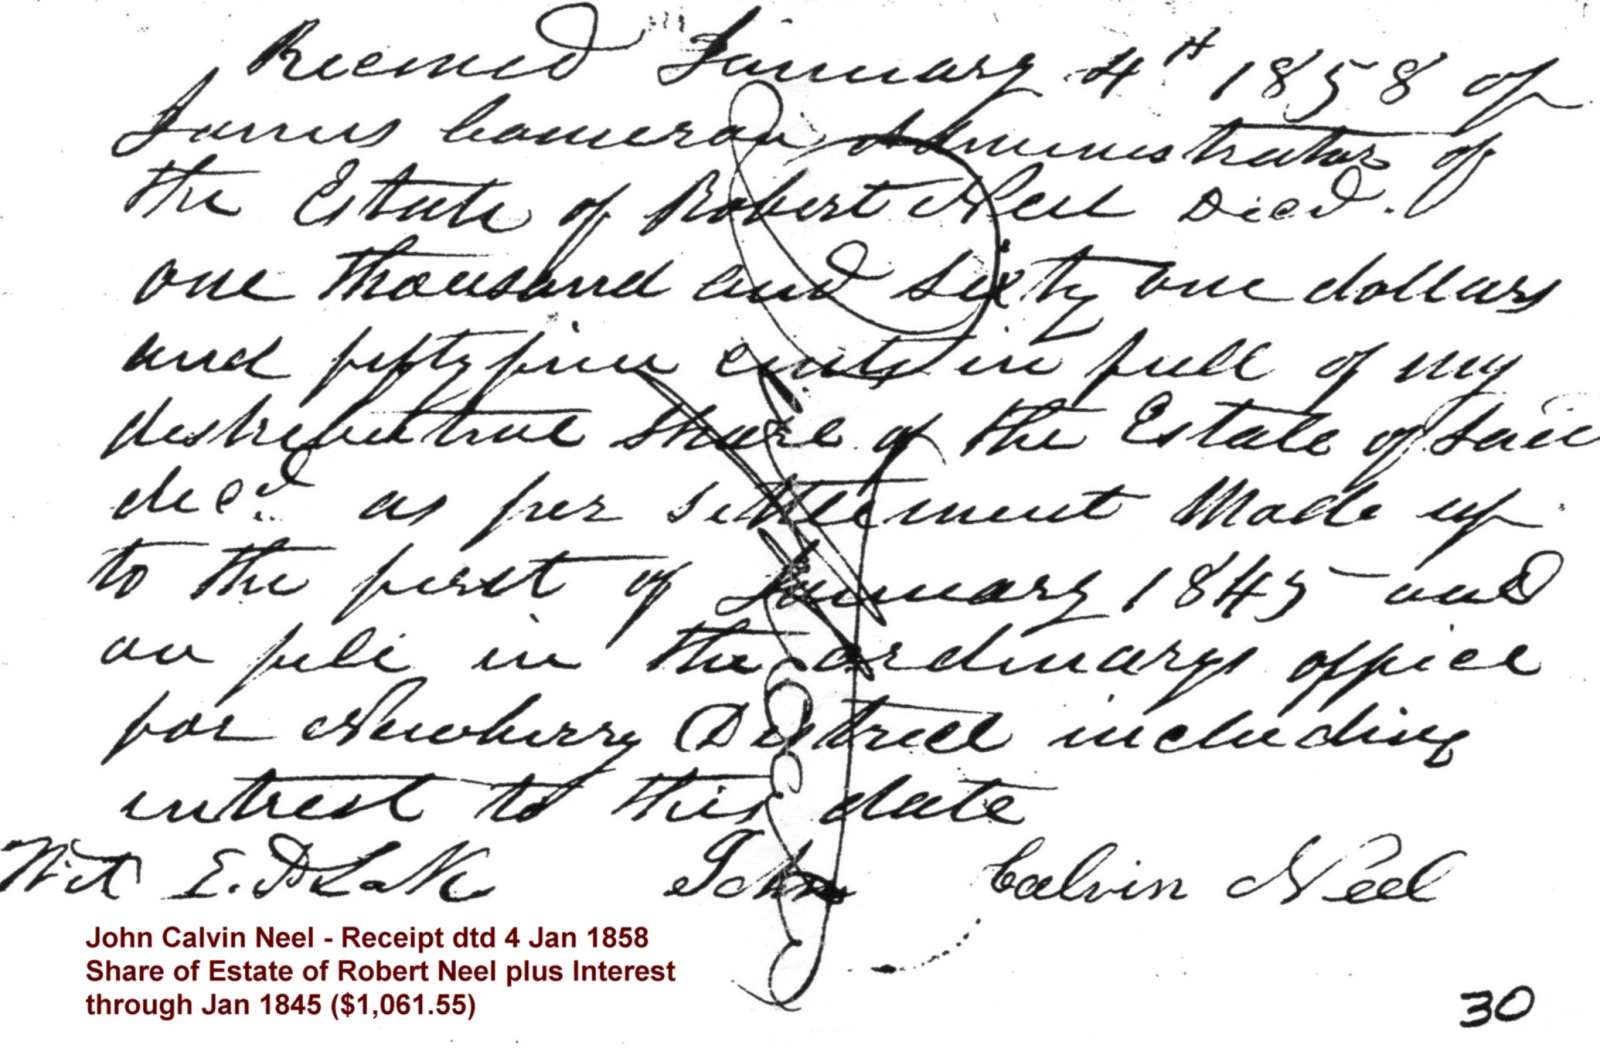 Received January 4th 1858 of
James Cameron Administrator of
the Estate of Robert Neel Dicd.
one thousand and sixty one dollars
and fifty five cents in full of my
distributive share of the Estate of said
decd. as per settlement Made up
to the first of January 1845 and
on file in the ordinarys office
for Newberry District including
intrest to this date
Wit E. P Lake John Calvin Neel
John Calvin Neel - Receipt dtd 4 Jan 1858
Share of Estate of Robert Neel plus Interest
through Jan 1845 ($1,061.55)
30